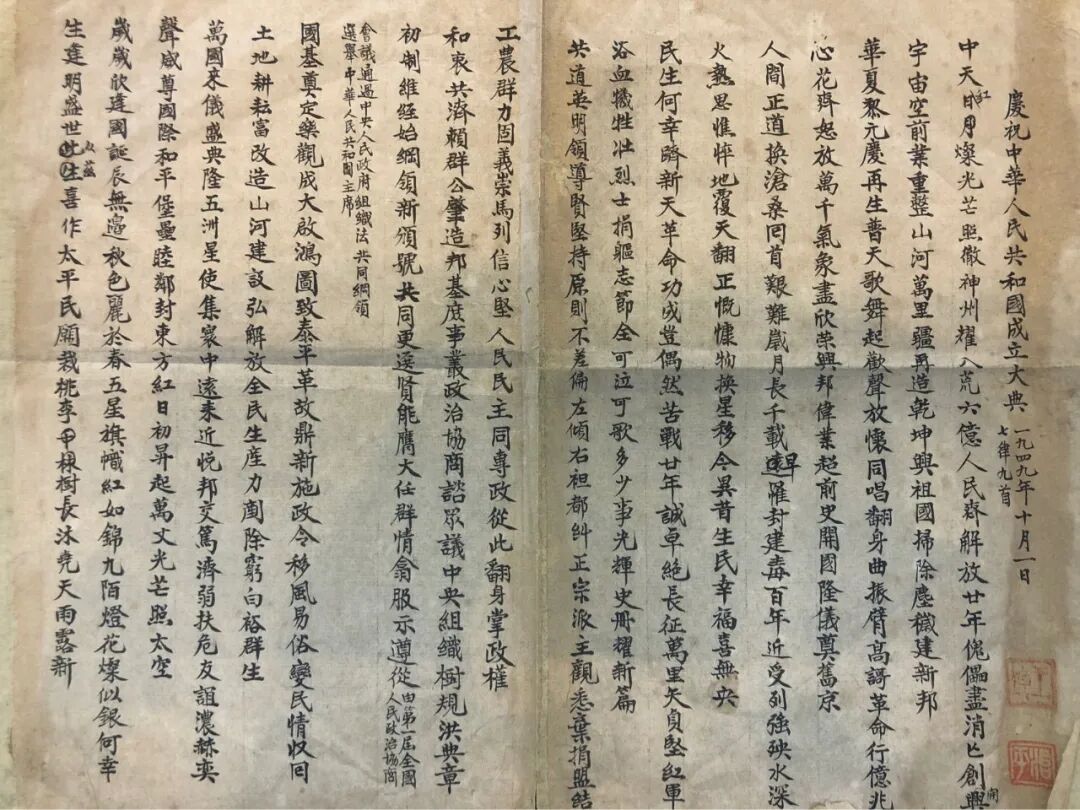 慶祝中華人民共和國成立大典 一九四九年十月一日
七律九首
紅
開
中天日月燦光芒照徹神州耀八荒六億人民齊解放廿年傀儡盡消亡創興
宇宙空前業重整山河萬里疆再造乾坤興祖國掃除塵穢建新邦
華夏黎元慶再生普天歌舞起歡聲放懷同唱翻身曲振臂高謌革命行億兆
心花齊怒放萬千氣象盡欣榮興邦偉業超前史開國隆儀奠舊京
早
人間正道換滄桑回首艱難歲月長千載遠罹封建毒百年近受列強殃水深
火熱思憔悴地覆天翻正慨慷物換星移今異昔生民幸福喜無央
民生何幸躋新天革命功成豈偶然苦戰廿年誠卓絕長征萬里矢貞堅紅軍
浴血犧牲壯烈士捐軀志節全可泣可歌多少事光輝史冊耀新篇
共道英明領導賢堅持原則不差偏左傾右袒都糾正宗派主觀悉棄捐盟結
工農群力固義崇馬列信心堅人民民主同專政從此翻身掌政權
和衷共濟賴群公肇造邦基庶事叢政治協商諮眾議中央組織樹規洪典章
初制維經始綱領新頒號共同更選賢能膺大任群情翕服示遵從由第一屆全國人民政治協商
會議通過中央人民政府組織法 共同綱領
選舉中華人民共和國主席
國基奠定樂觀成大啟鴻圖致泰平革故鼎新施政令移風易俗變民情收回
土地耕耘富改造山河建設弘解放全民生產力剷除窮白裕群生
萬國來儀盛典隆五洲星使集寰中遠來近悅邦交篤濟弱扶危友誼濃赫奕
聲威尊國際和平堡壘睦鄰封東方紅日初昇起萬丈光芒照太空
歲歲欣逢國誕辰無邊秋色麗於春五星旗幟紅如錦九陌燈花燦似銀何幸
生逢明盛世此生喜作太平民願栽桃李千株樹長沐堯天雨露新